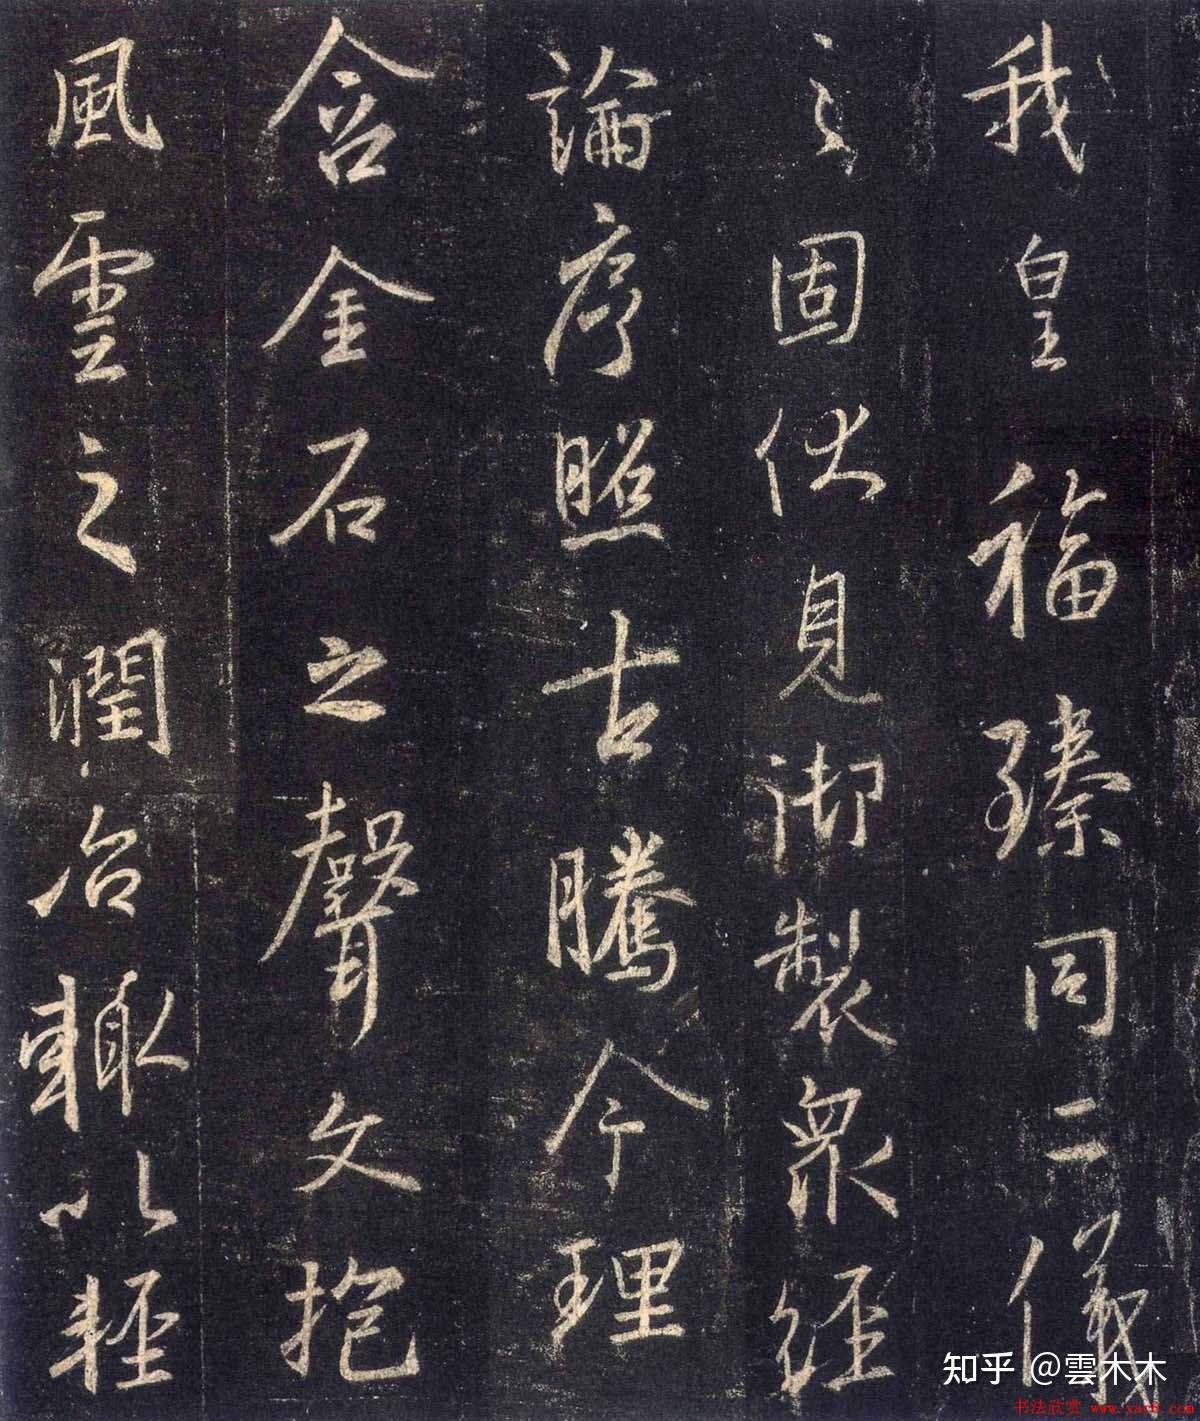 我皇福臻同二儀
之固伏見御製衆經
論序照古騰今理
含金石之聲文抱
風雲之潤治輙以輕
知乎 @雲木木
书法欣赏 www.yac8.com